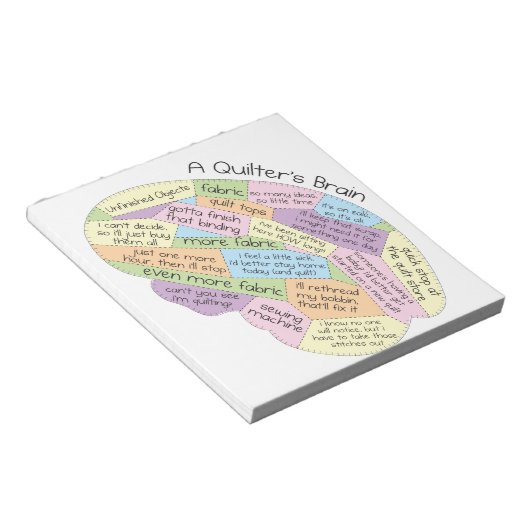 A Quilter's Brain
Unfinished Objects
fabric
so many ideas,
so little time
it's on sale,
so it's ok
quilt tops
gotta finish
that binding
i'll keep that scrap,
i might need it for
something one day
i can't decide,
so i'll just buy
them all
i've been sitting
here HOW long?
more fabric
quick stop at
the quilt store
just one more
hour, then i'll stop
i feel a little sick,
i'd better stay home
today (and quilt)
someone is having a
baby!
even more fabric
can't you see
i'm quilting?
i'll rethread
my bobbin,
that'll fix it
sewing
machine
i know no one
will notice, but i
have to take those
stitches out